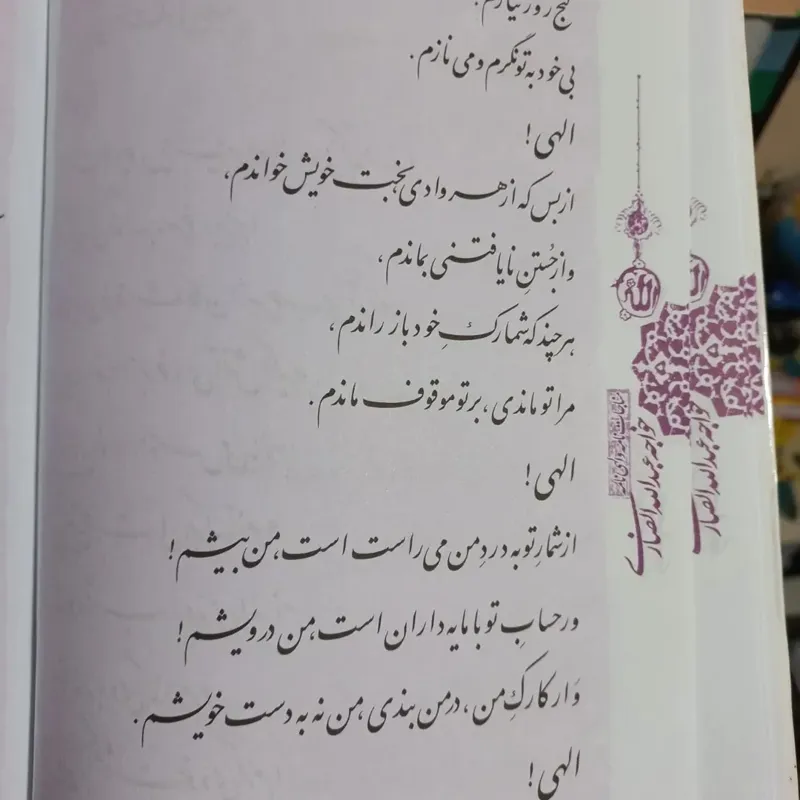 گنج روز نیازم.
بی خود به تو نگرم و می نازم.
الهی!
از بس که از هر وادی بخبت خویش خواندم،
و از جُستنِ نایافتنی بماندم،
هر چند که شمارکِ خود باز راندم،
مرا تو ماندی، بر تو موقوف ماندم.
الهی!
از شمارِ تو به دردِ من می راست است، من بیشم!
ور حسابِ تو با مایه داران است، من درویشم!
وَار کارکِ من، در من بندی، من نه به دست خویشم.
الهی!
الله
خواجه عبدالله انصاری
الله
خواجه عبدالله انصار